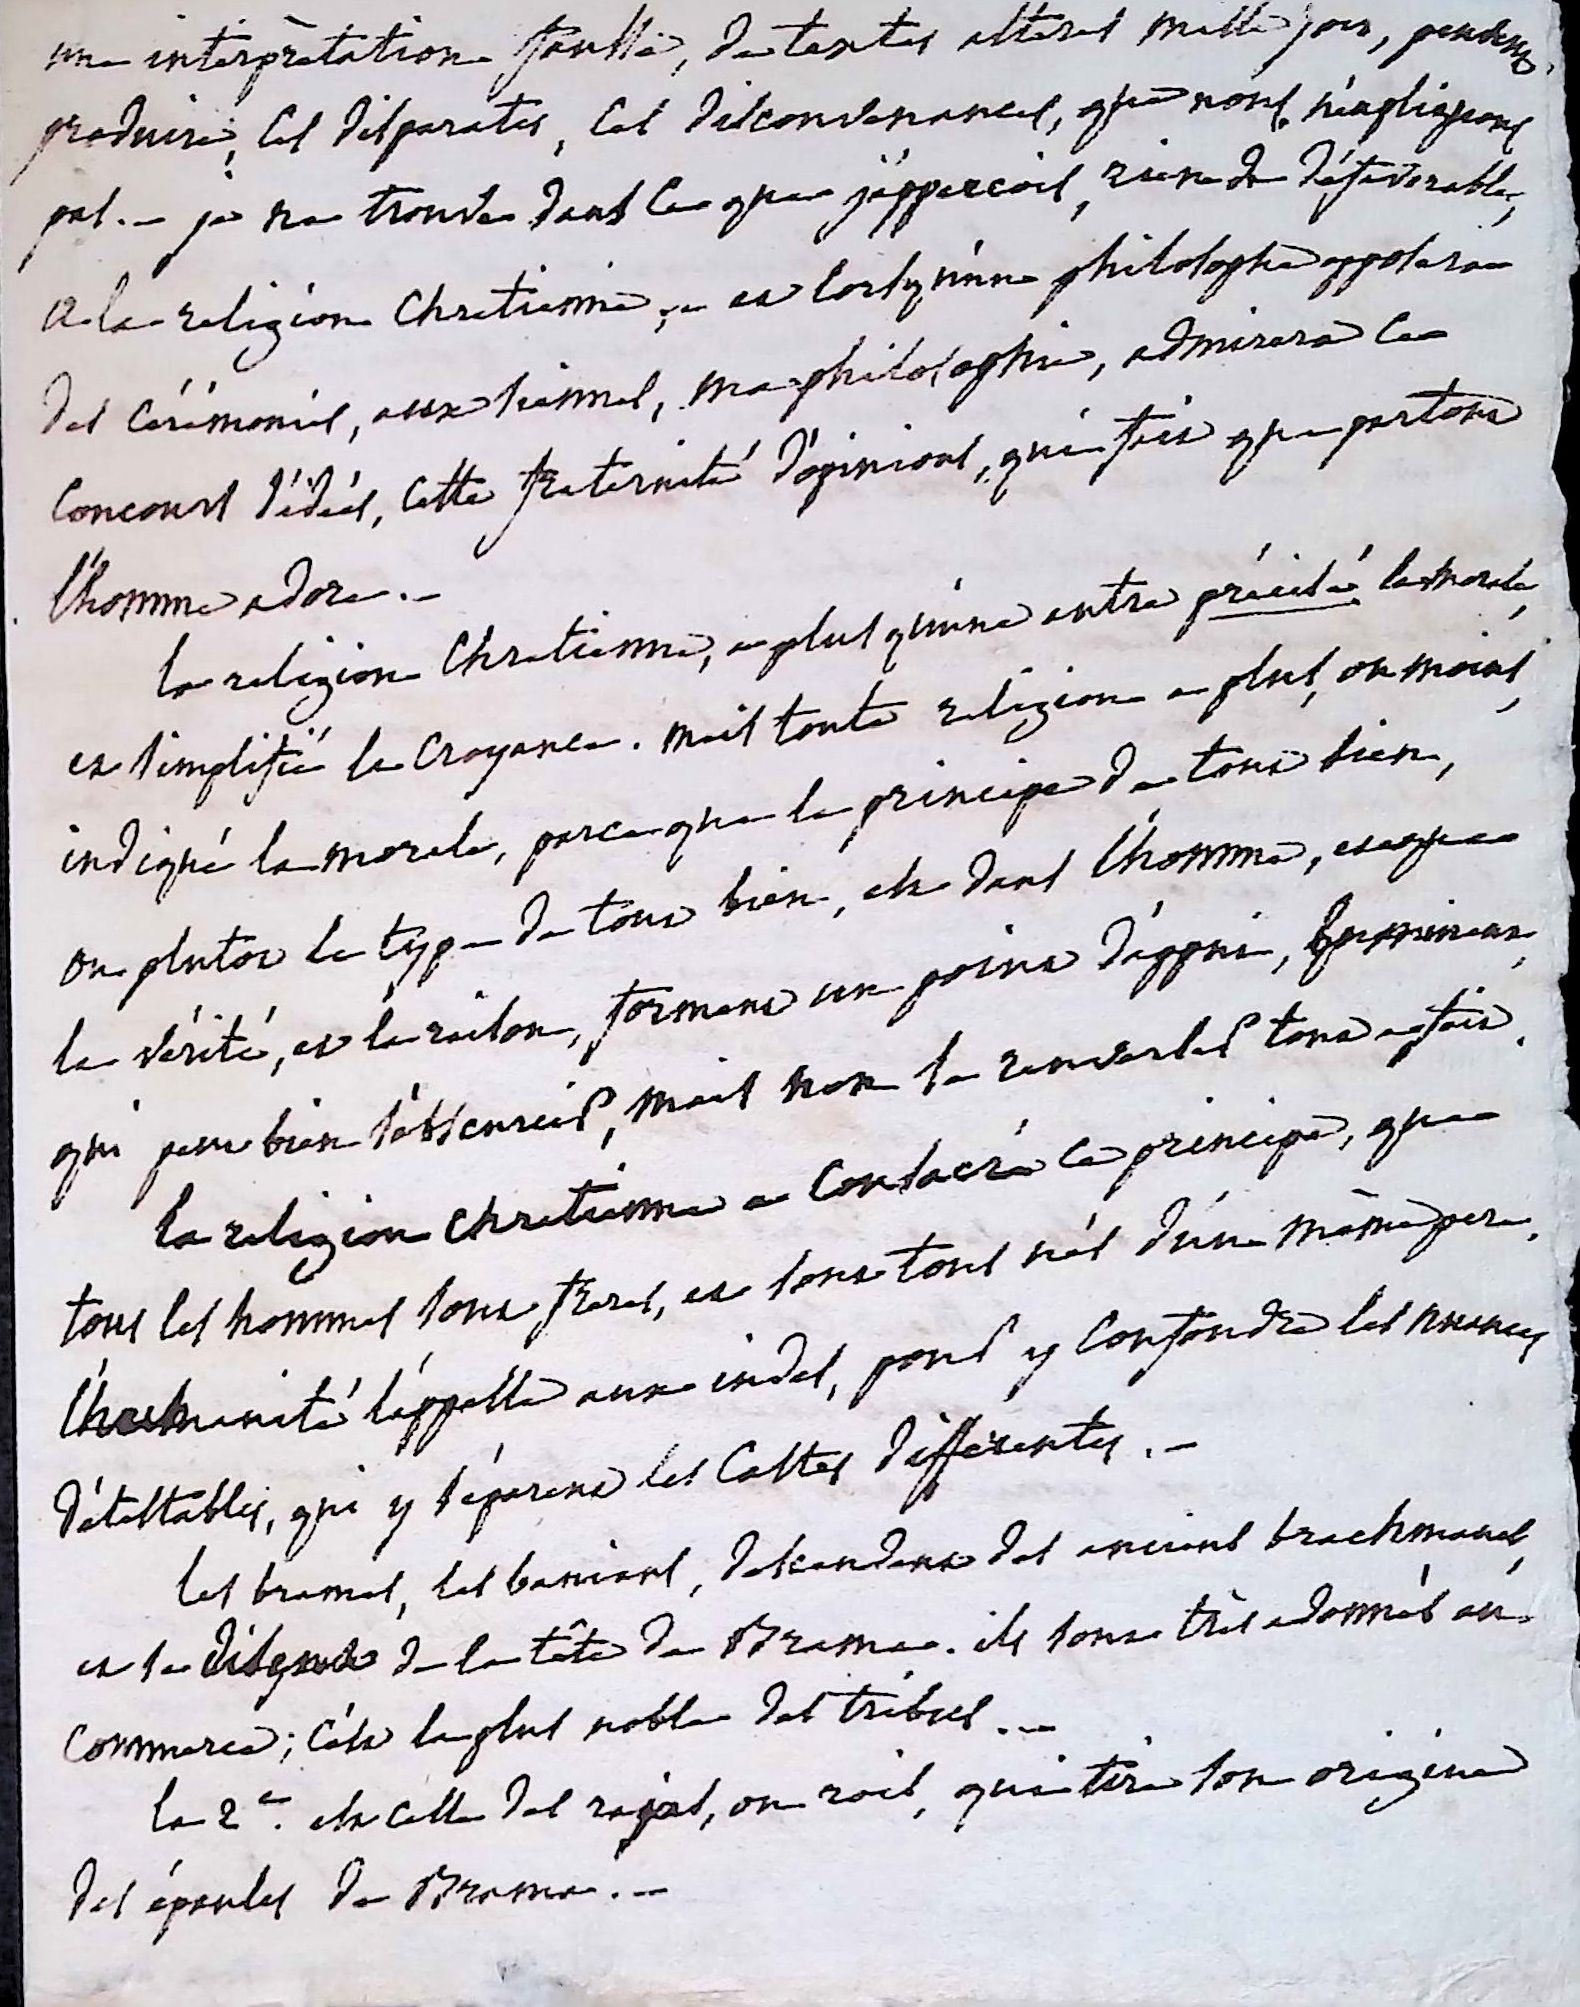 une interprètation fausse, de textes alterés mille fois, peuvent
produire, ces disparates, ces disconvenances, que nous n'expliquons
pas. — je ne trouve dans ce que j'apperçois, rien de défavorable,
a la religion Chretienne, et lorsqu'une philosophie opposera
des cérémonies, aux siennes, ma philosophie, admirera ce
concours d'idées, cette fraternité d'opinions, qui fait que partout
l'homme adore. —
la religion Chretienne, a plus qu'une autre précisé la morale,
et simplifié la croyance. mais toute religion a plus, ou moins,
indiqué la morale, parce que le principe de tout bien,
ou plutot le type de tout bien, est dans l'homme, et que
la vérité, et la raison, forment un point d'appui, lumineux,
qui peut bien s'obscurcir, mais non se renverser tout a fait.
la religion chretienne a consacré ce principe, que
tous les hommes sont freres, et sont tous nés d'un même pere.
l'humanité l'appelle aux indes, pour y confondre les nuances
détestables, qui y séparent les castes différentes. —
les brames, les banians, descendent des anciens brachmanes,
et se disent de la tête de Brama. ils sont très adonnés au
commerce; c'est la plus noble des tribus. —
la 2e. est celle des rajas, ou rois, qui tire son origine
des épaules de Brama. —